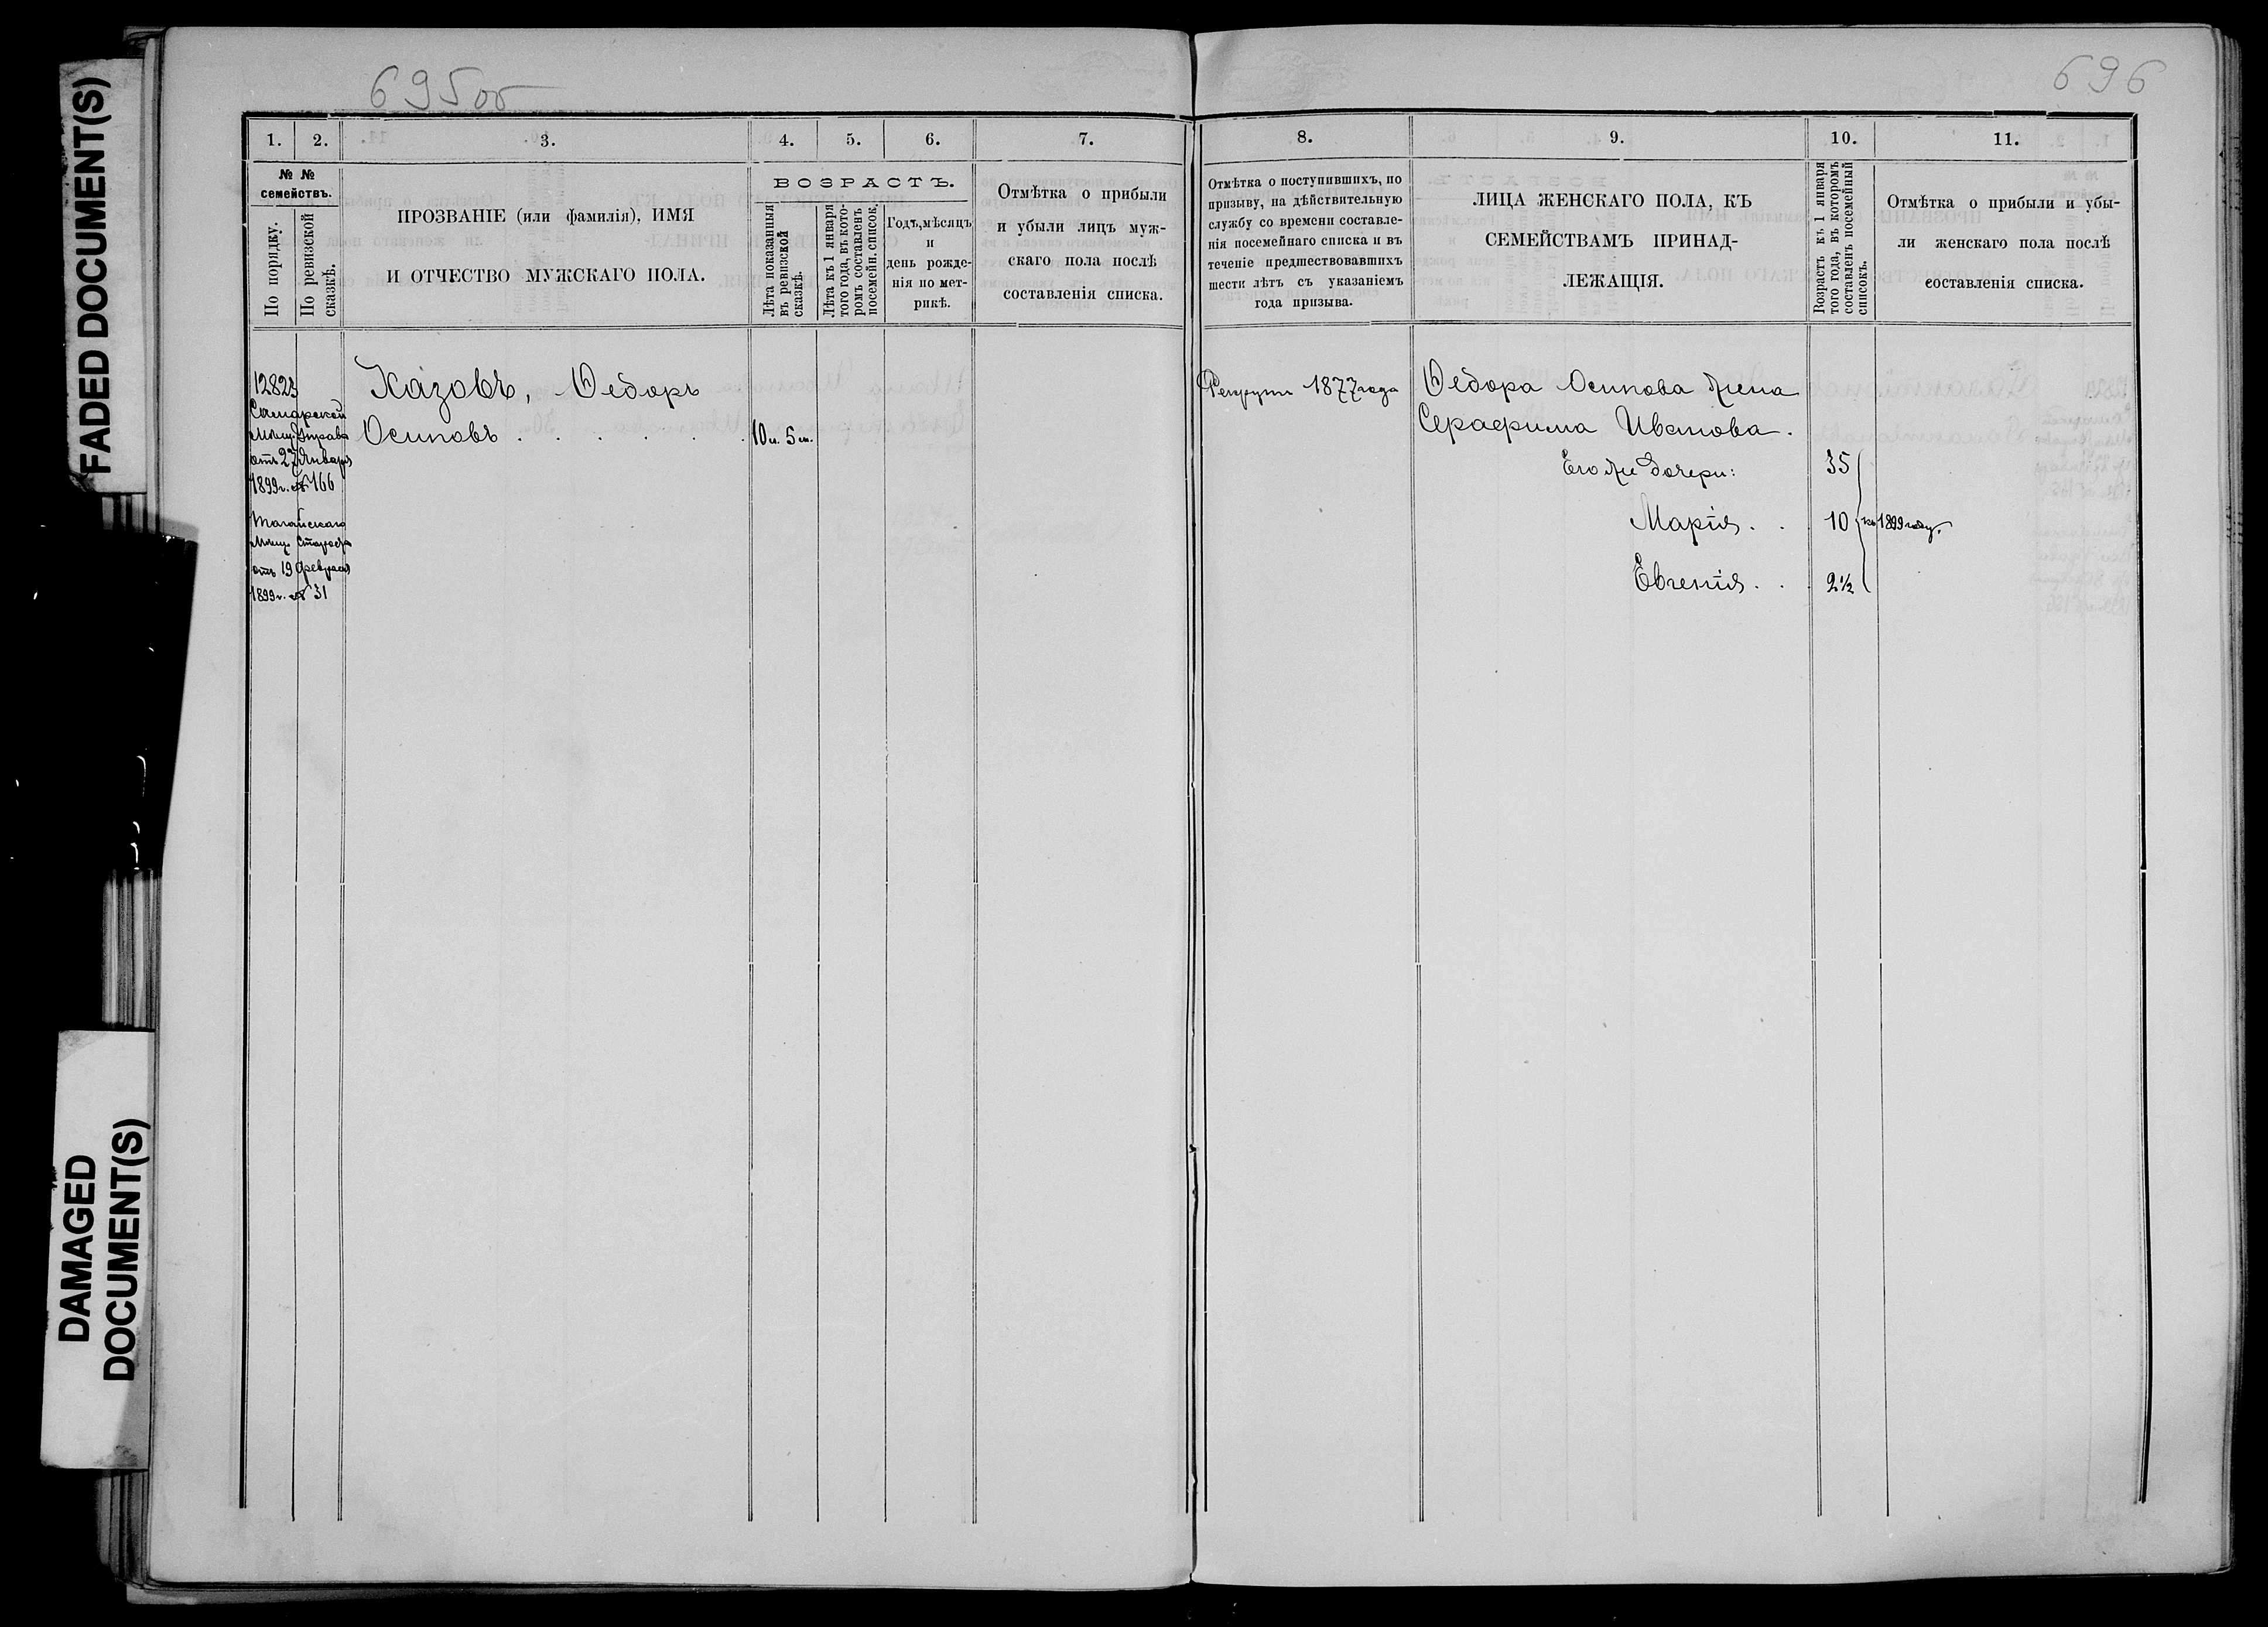 FADED DOCUMENT(S)
DAMAGED
DOCUMENT(S)
695об
1.
2.
3.
4.
5.
6.
7.
№ №
семействъ.
По порядку.
По ревизской
сказкѣ.
ПРОЗВАНІЕ (или фамилія), ИМЯ
И ОТЧЕСТВО МУЖСКАГО ПОЛА.
ВОЗРАСТЪ.
Лѣта показанныя
въ ревизской
сказкѣ.
Лѣта къ 1 января
того года, въ кото-
ромъ составленъ
посемейн. список.
Годъ, мѣсяцъ
и
день рожде-
нія по мет-
рикѣ.
Отмѣтка о прибыли
и убыли лицъ муж-
скаго пола послѣ
составленія списка.
12823
Самарской
Мѣщ. Управы
отъ 27 Января
1899 г. № 166
Мѣщ. Старосты
отъ 19 Февраля
1899 г. № 31
Казовъ, Ѳедоръ
Осиповъ . . . . . .
10 л. 5 м.
696
8.
9.
10.
11.
Отмѣтка о поступившихъ, по
призыву, на дѣйствительную
службу со времени составле-
нія посемейнаго списка и въ
теченіе предшествовавшихъ
шести лѣтъ съ указаніемъ
года призыва.
ЛИЦА ЖЕНСКАГО ПОЛА, КЪ
СЕМЕЙСТВАМЪ ПРИНАД-
ЛЕЖАЩІЯ.
Возрастъ къ 1 января
того года, въ которомъ
составленъ посемейный
списокъ.
Отмѣтка о прибыли и убы-
ли женскаго пола послѣ
составленія списка.
Рекрутъ 1877 года
Ѳедора Осипова жена
Серафима Иванова .
35
Его же дочери:
Марія . . 10 къ 1899 году.
Евгенія . . 2½